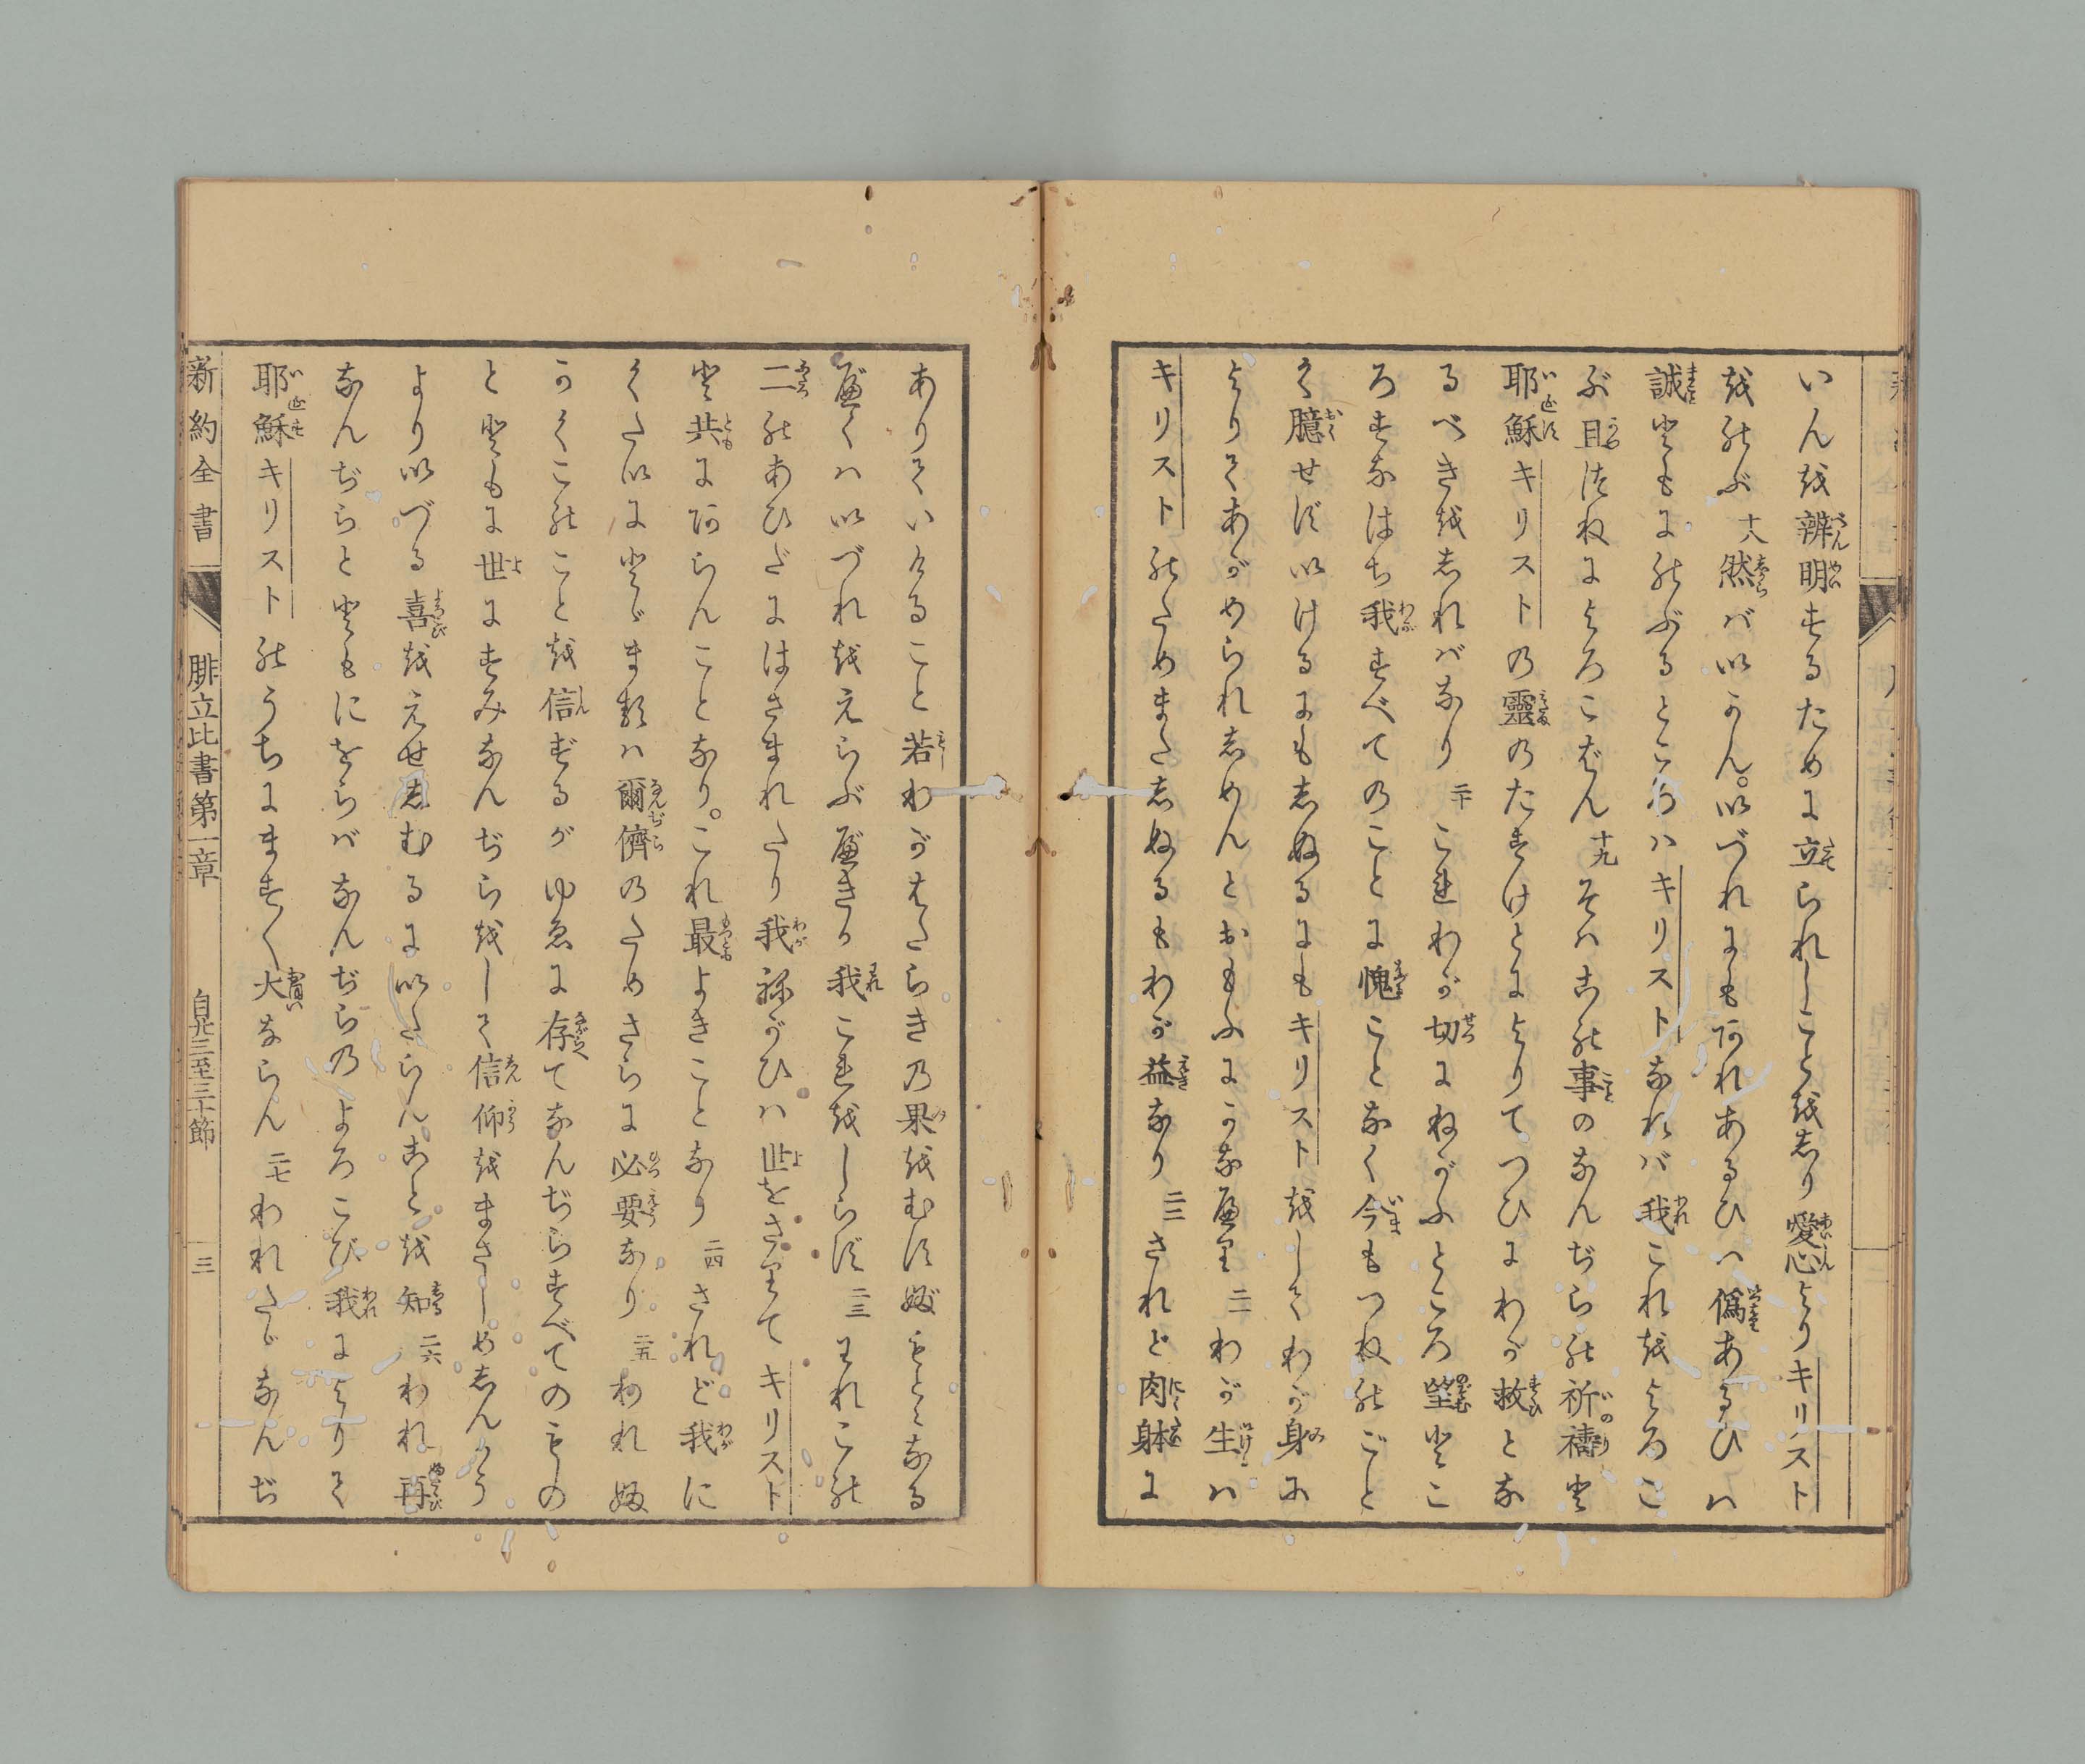 いんを辨明するために立られしことをしり愛心よりキリスト
をのぶ 十八 然ばいかん。いづれにもあれあるひハ偽あるひハ
誠ともにのぶるところハキリストなれバ我これをよろこ
ぶ且つねによろこばん 十九 そハこの事のなんぢらの祈禱と
耶穌キリストの靈のたすけとによりてつひにわが救とな
るべきをしれバなり 二十 これわが切にねがふところ望とこ
ろすなはち我すべてのことに愧ことなく今もつねのごと
く臆せずいけるにもしぬるにもキリストをしてわが身に
よりてあがめられしめんとおもふにかなへり 二一 わが生ハ
キリストのためまたしぬるもわが益なり 二二 されど肉身に
ありていけること若わがはたらきの果をむすぶもとゝなる
べくハいづれをえらぶべきか我これをしらず 二三 われこの
二のあひだにはさまれたり我ねがひハ世をさりてキリスト
と共にあらんことなり。これ最よきことなり 二四 されど我に
くたいにとゞまるハ爾儕のためさらに必要なり 二五 われふ
かくこのことを信ずるがゆゑに存てなんぢらすべてのもの
とともに世にすみなんぢらをして信仰をまさしめしんかう
よりいづる喜をえせしむるにいたらんことを知 二六 われ再
なんぢらとともにをらバなんぢらのよろこび我によりて
耶穌キリストのうちにますく大ならん 二七 われたゞなんぢ
新約全書 腓立比書第一章 自廿三至三十節 三